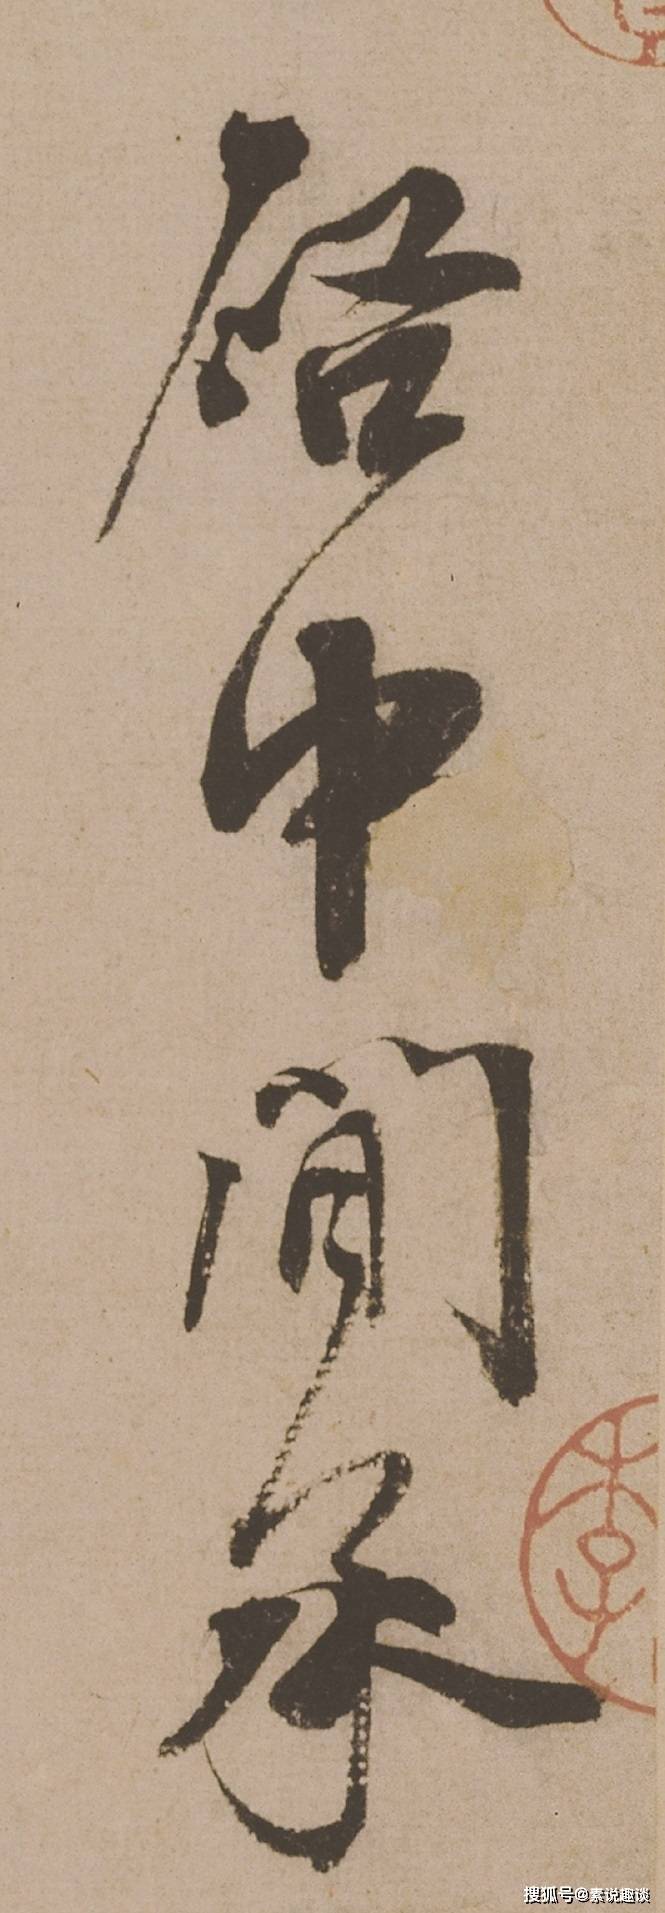 啓中間承
搜狐号@素说趣谈